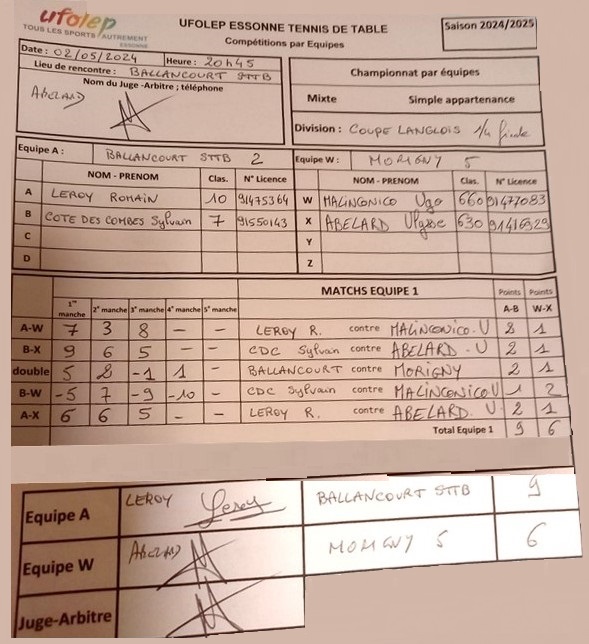 ufolep
TOUS LES SPORTS AUTREMENT
ESSONNE
UFOLEP ESSONNE TENNIS DE TABLE
Compétitions par Equipes
Saison 2024/2025
Date : 02/05/2024 Heure : 20h45
Lieu de rencontre : BALLANCOURT STTB
Nom du Juge -Arbitre ; téléphone
ABELARD
Championnat par équipes
Mixte Simple appartenance
Division : COUPE LANGLOIS 1/4 finale
Equipe A : BALLANCOURT STTB 2 Equipe W : MORIGNY 5
NOM - PRENOM Clas. N° Licence NOM - PRENOM Clas. N° Licence
A LEROY ROMAIN 10 91475364 W MALINCONICO Ugo 660 91477083
B COTE DES COMBES Sylvain 7 91550143 X ABELARD Ulysse 630 91416929
C Y
D Z
1re manche 2e manche 3e manche 4e manche 5e manche MATCHS EQUIPE 1 Points A-B Points W-X
A-W 7 3 8 – – LEROY R. contre MALINCONICO.U 2 1
B-X 9 6 5 – – CDC Sylvain contre ABELARD.U 2 1
double 5 8 -1 1 – BALLANCOURT contre MORIGNY 2 1
B-W -5 7 -9 -10 – CDC Sylvain contre MALINCONICO U 1 2
A-X 6 6 5 – – LEROY R. contre ABELARD. U 2 1
Total Equipe 1 9 6
Equipe A LEROY Leroy BALLANCOURT STTB 9
Equipe W ABELARD MORIGNY 5 6
Juge-Arbitre